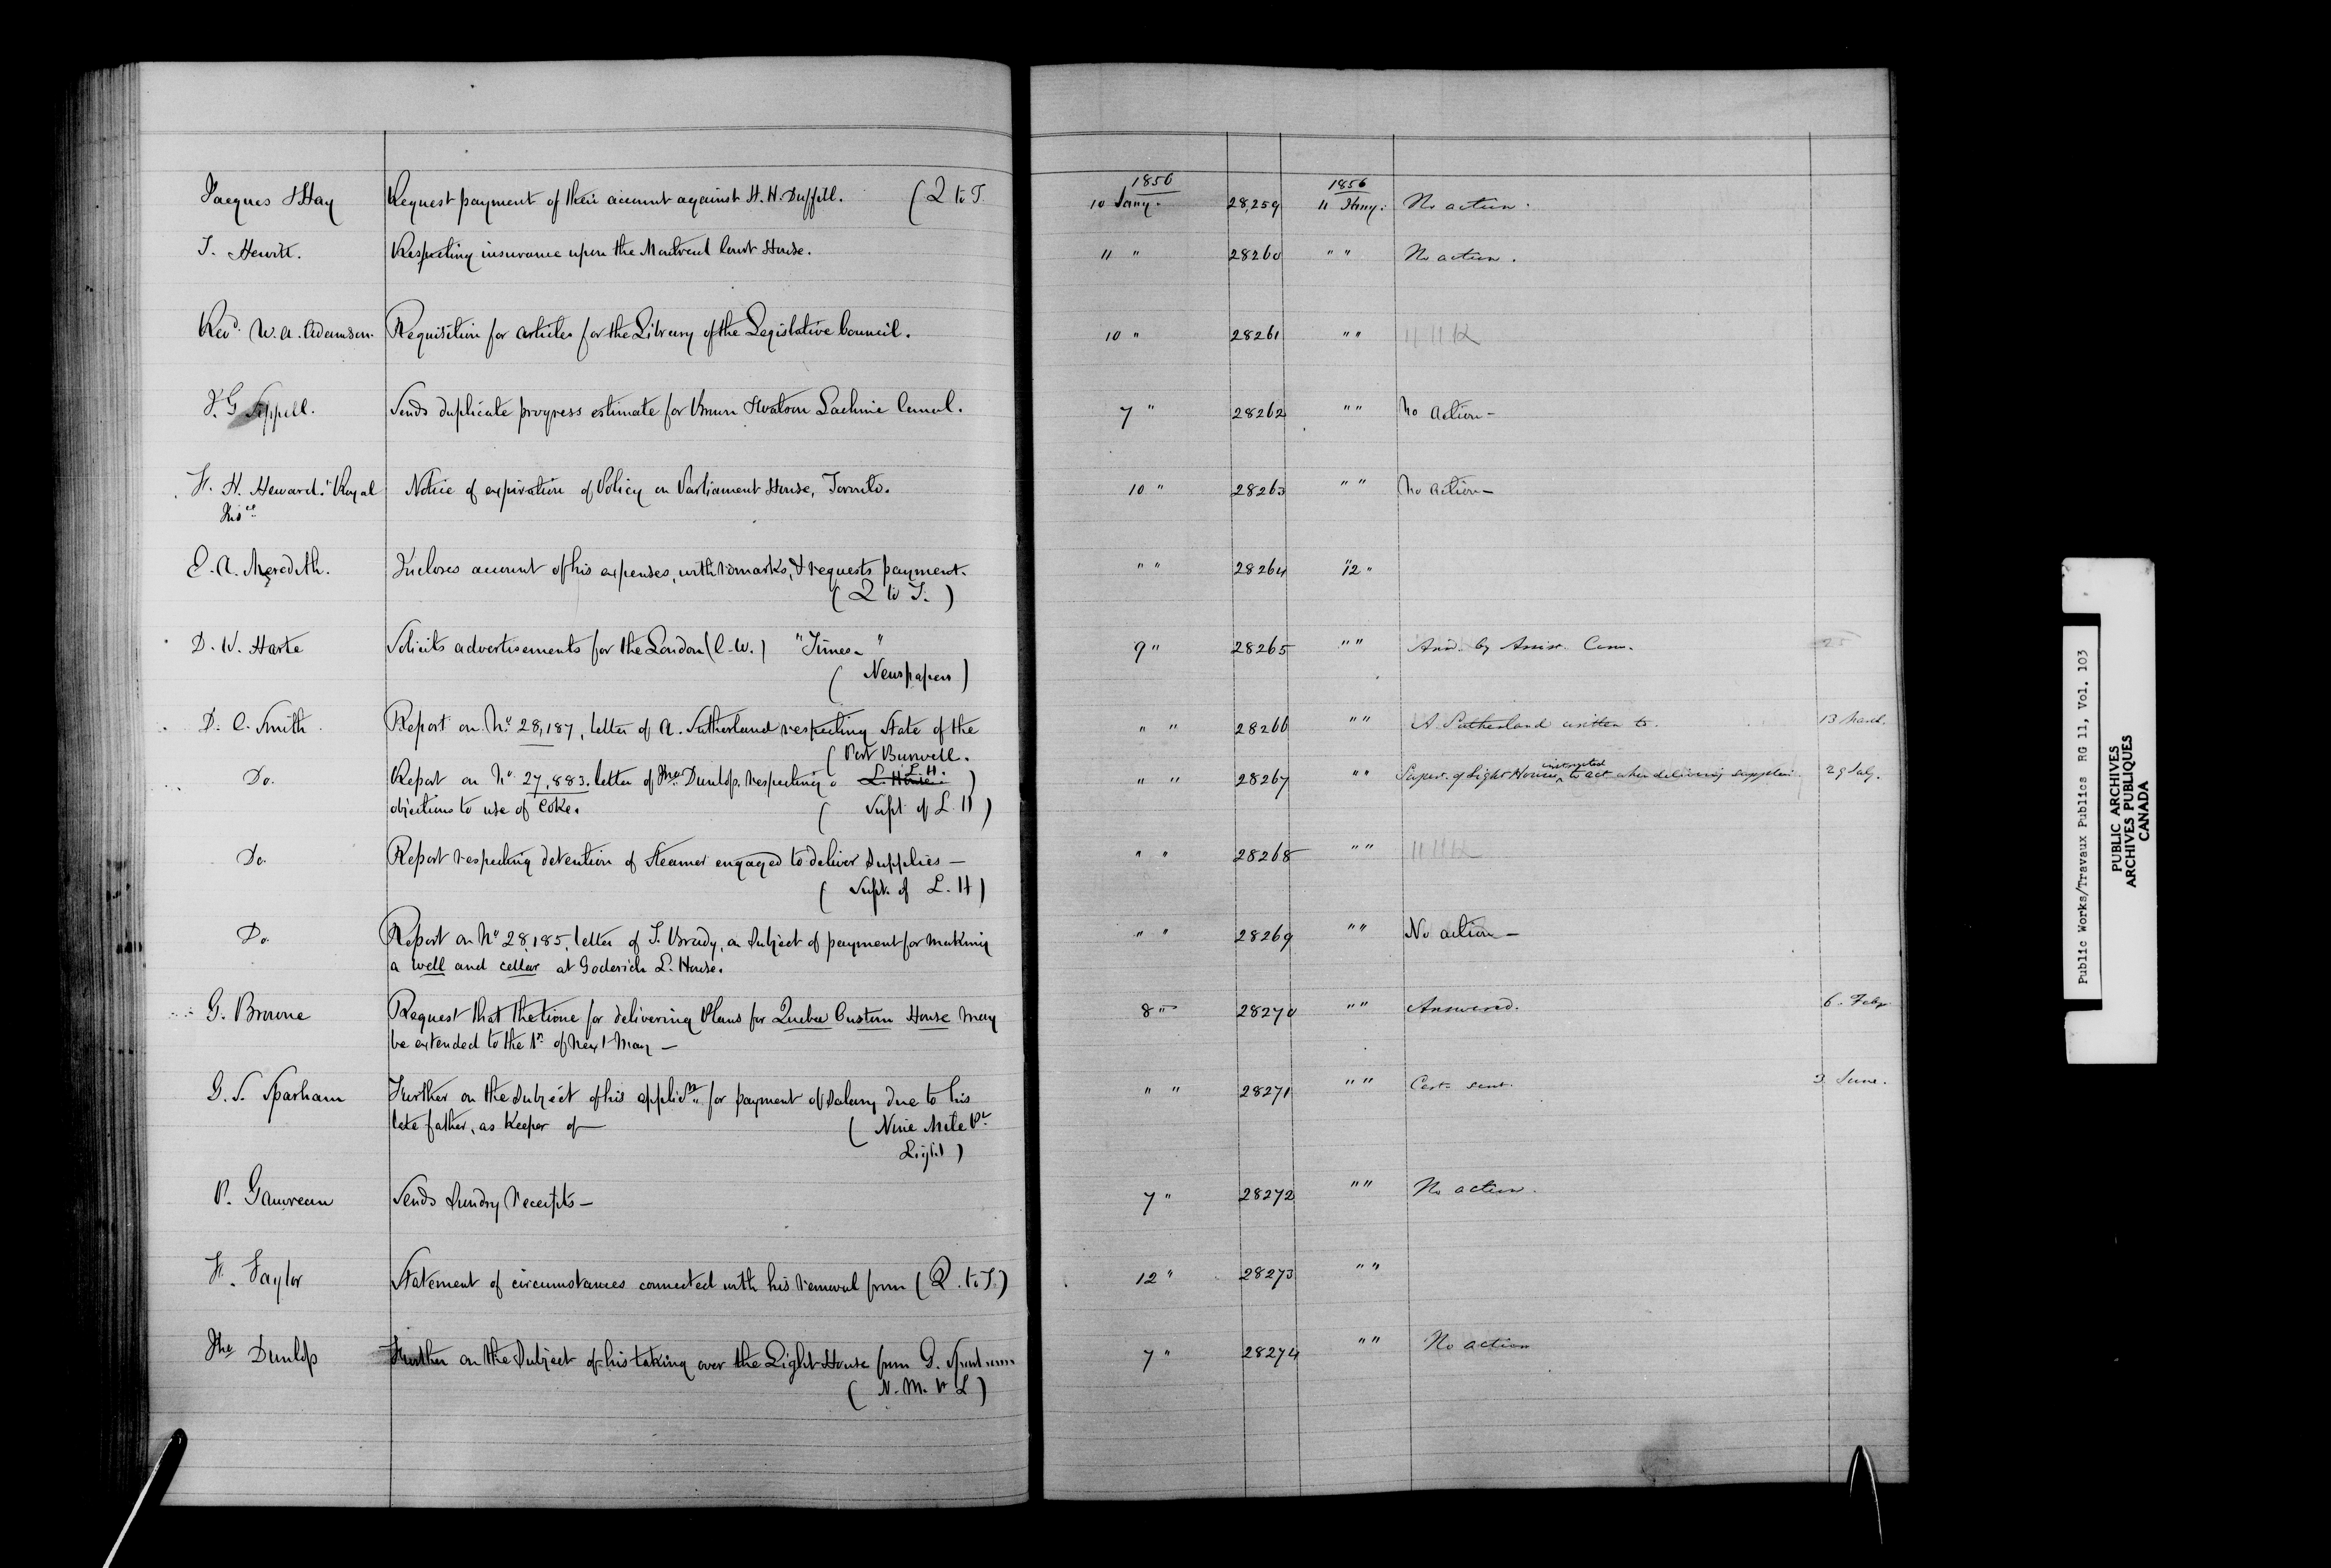 1856 1856
Jacques & Hay Request payment of their account against H. H. Duffill. (Q to T. 10 Jany. 28,259 11 Jany. No action.
T. Hewitt. Respecting insurance upon the Montreal Court House. 11 " 28260 " " No action.
Revd. W. A. Adamson. Requisition for articles for the Library of the Legislative Council. 10 " 28261 " "
J. G Sippell. Sends duplicate progress estimate for Brown & Watson Lachine Canal. 7 " 28262 " " No action -
H. H. Heward. Royal Notice of expiration of Policy on Parliament House, Toronto. 10 " 28263 " " No action -
Insce.
E. A. Meredith. Incloses account of his expenses, with remarks, & requests payment. " " 28264 " 12 "
(Q to T.)
D. W. Harte Solicits advertisements for the London (C. W.) "Times" 9 " 28265 " " Ansd. by Assist. Com. 25
(Newspapers)
D. C. Smith Report on No. 28,187, letter of A. Sutherland respecting State of the " " 28266 " " A. Sutherland written to. 13 March.
(Port Burwell.
L. H.
Do. Report on No. 27,883, letter of Thos Dunlop, respecting L. House ) " " 28267 " " Super. of Light Houses instructed to act when delivering supplies. 29 July.
objections to use of Coke. (Supt. of L. H)
Do. Report respecting detention of Steamer engaged to deliver Supplies - " " 28268 " "
(Supt. of L. H)
Do. Report on No 28,185, letter of T. Brady, on Subject of payment for making " " 28269 " " No action -
a well and cellar at Goderich L. House.
G. Browne Request that the time for delivering Plans for Quebec Custom House may 8 " 28270 " " Answered. 6. Feby
be extended to the 1st. of next May -
G. S. Sparham Further on the Subject of his applicn. for payment of Salary due to his " " 28271 " " Cert. sent. 3 June.
late father, as Keeper of - (Nine Mile Pt.
Light)
P. Gauvreau Sends Sundry Receipts - 7 " 28272 " " No action.
H. Taylor Statement of circumstances connected with his removal from (Q. to T.) 12 " 28273 " "
Thos Dunlop Further on the Subject of his taking over the Light House from G. 7 " 28274 " " No action
(N. M. P L)
Public Works/Travaux Publics RG 11, Vol. 103
PUBLIC ARCHIVES
ARCHIVES PUBLIQUES
CANADA